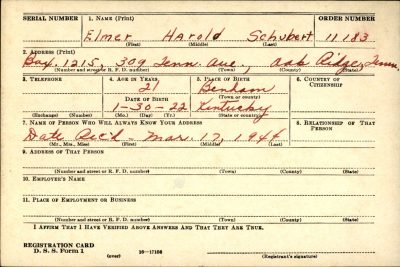 SERIAL NUMBER 1. NAME (Print) ORDER NUMBER
Elmer Harold Schubert 11183
(First) (Middle) (Last)
2. ADDRESS (Print)
Box 1215, 309 Tenn. Ave., Oak Ridge, Tenn
(Number and street or R. F. D. number) (Town) (County) (State)
3. TELEPHONE 4. AGE IN YEARS 5. PLACE OF BIRTH 6. COUNTRY OF CITIZENSHIP
21 Benham
DATE OF BIRTH (Town or county)
1-30-22 Kentucky
(Exchange) (Number) (Mo.) (Day) (Yr.) (State or country)
7. NAME OF PERSON WHO WILL ALWAYS KNOW YOUR ADDRESS 8. RELATIONSHIP OF THAT PERSON
Date Rec'd - Mar. 17, 1944
(Mr., Mrs., Miss) (First) (Middle) (Last)
9. ADDRESS OF THAT PERSON
(Number and street or R. F. D. number) (Town) (County) (State)
10. EMPLOYER'S NAME
11. PLACE OF EMPLOYMENT OR BUSINESS
(Number and street or R. F. D. number) (Town) (County) (State)
I AFFIRM THAT I HAVE VERIFIED ABOVE ANSWERS AND THAT THEY ARE TRUE.
REGISTRATION CARD
D. S. S. Form 1 (over) 16-17105 (Registrant's signature)